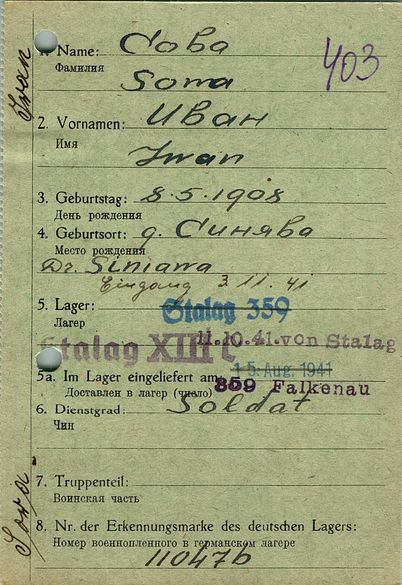 1. Name: Сова
Фамилия
403
Sowa
2. Vornamen: Иван
Имя
Iwan
3. Geburtstag: 8.5.1908
День рождения
4. Geburtsort: д. Синява
Место рождения
Dr. Siniawa
Eingang 3.11.41
5. Lager: Stalag 359
Лагер
11.10.41. von Stalag
Stalag XIII
5a. Im Lager eingeliefert am: 15. Aug. 1941
359 Falkenau
Доставлен в лагер (число)
6. Dienstgrad: Soldat
Чин
7. Truppenteil:
Воинская часть
8. Nr. der Erkennungsmarke des deutschen Lagers:
Номер военнопленного в германском лагере
11047b
Iwan
Sowa